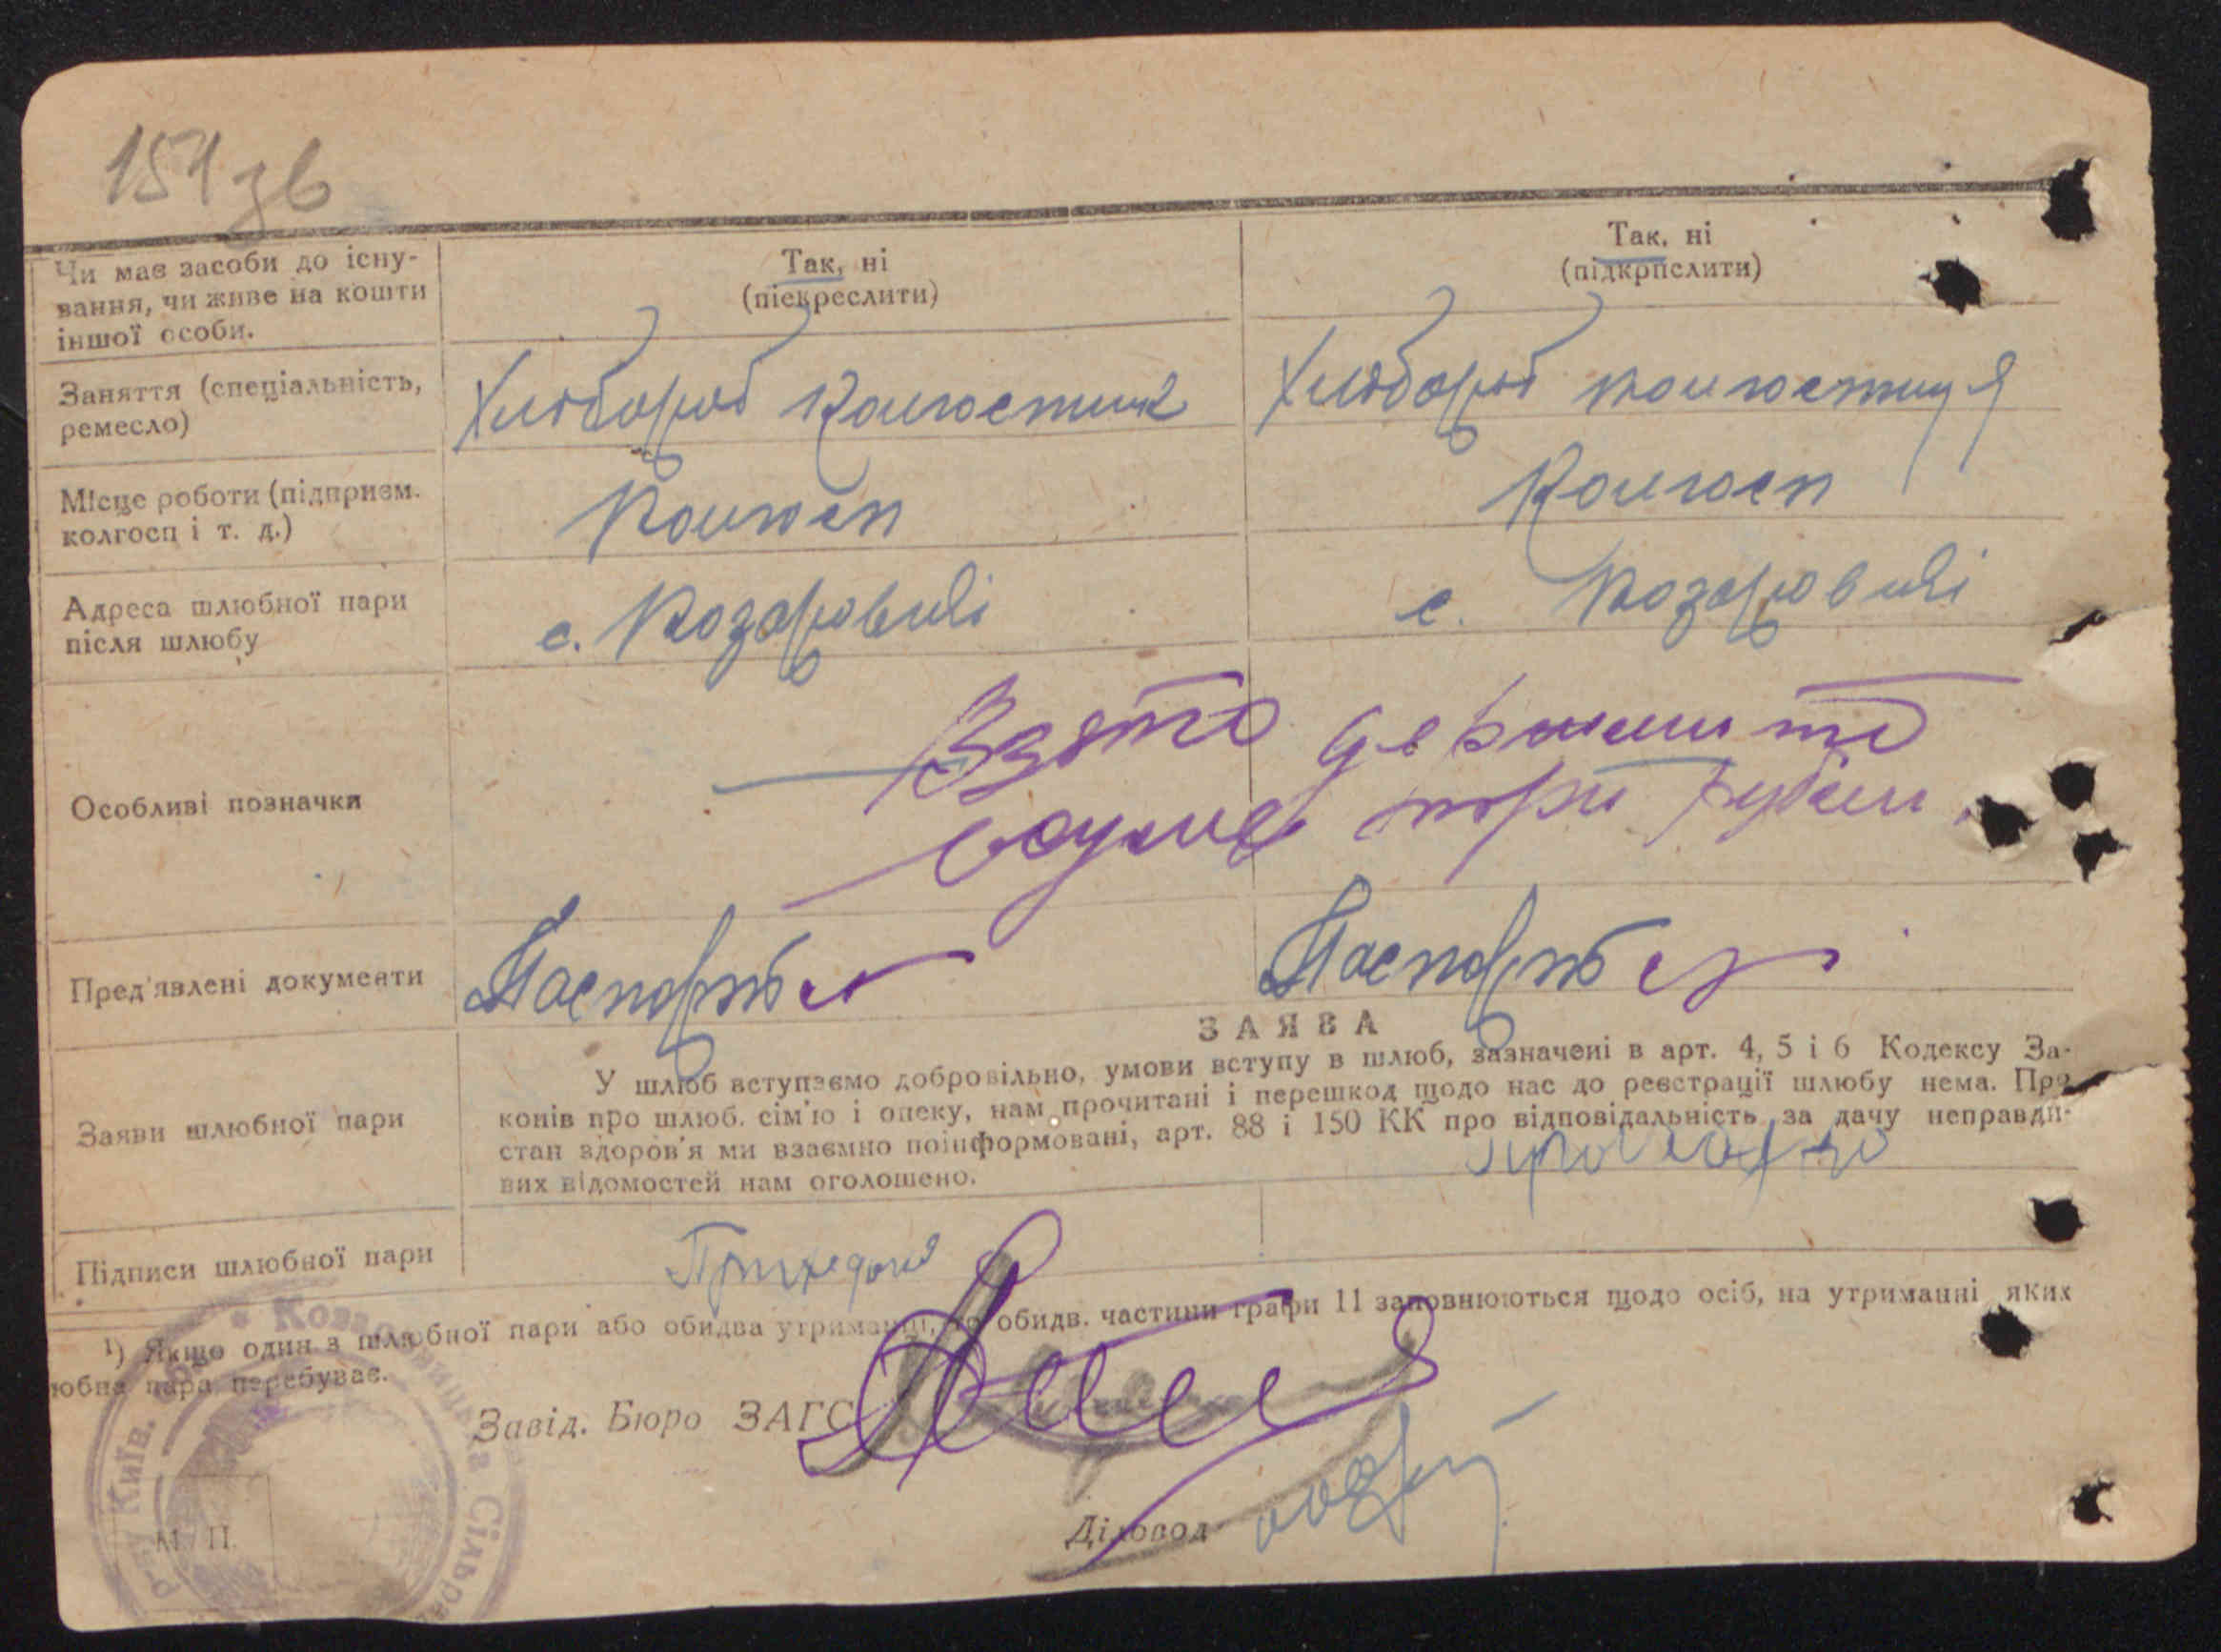 154 зв
Чи має засоби до існу-
вання, чи живе на кошти
іншої особи.
Так, ні
(піекреслити)
Так, ні
(підкрпслити)
Заняття (спеціальність,
ремесло)
Хлібороб Колгоспник
Хлібороб колгоспниця
Місце роботи (підприєм.
колгосп і т. д.)
Колгосп
Колгосп
Адреса шлюбної пари
після шлюбу
с. Козаровичі
с. Козаровичі
Особливі позначки
Взято
три рубли
Пред'явлені документи
Паспорт
Паспорт
Заяви шлюбної пари
ЗАЯВА
У шлюб вступаємо добровільно, умови вступу в шлюб, зазначені в арт. 4, 5 і 6 Кодексу За-
конів про шлюб. сім'ю і опеку, нам прочитані і перешкод щодо нас до реєстрації шлюбу нема. Про
стан здоров'я ми взаємно поінформовані, арт. 88 і 150 КК про відповідальність за дачу неправди-
вих відомостей нам оголошено.
Підписи шлюбної пари
Приходько
¹) Якщо один з шлюбної пари або обидва утриманці, то обидв. частини графи 11 заповнюються щодо осіб, на утриманні яких
юбна пара перебуває.
Завід. Бюро ЗАГС
Діловод
М. П.
р-ну Київ.
Сільрад